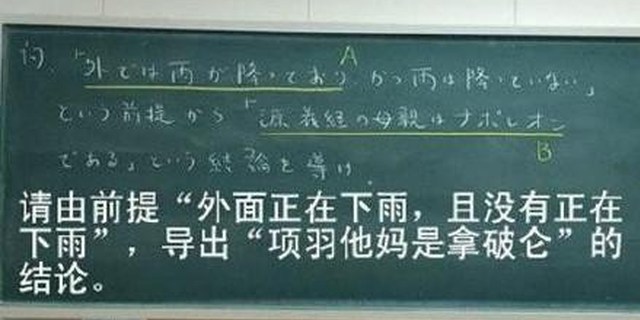 問 A
「外では雨が降っており かつ雨は降っていない」
という前提から「源義経の母親はナポレオン
B
である」という結論を導け.
请由前提“外面正在下雨，且没有正在
下雨”，导出“项羽他妈是拿破仑”的
结论。